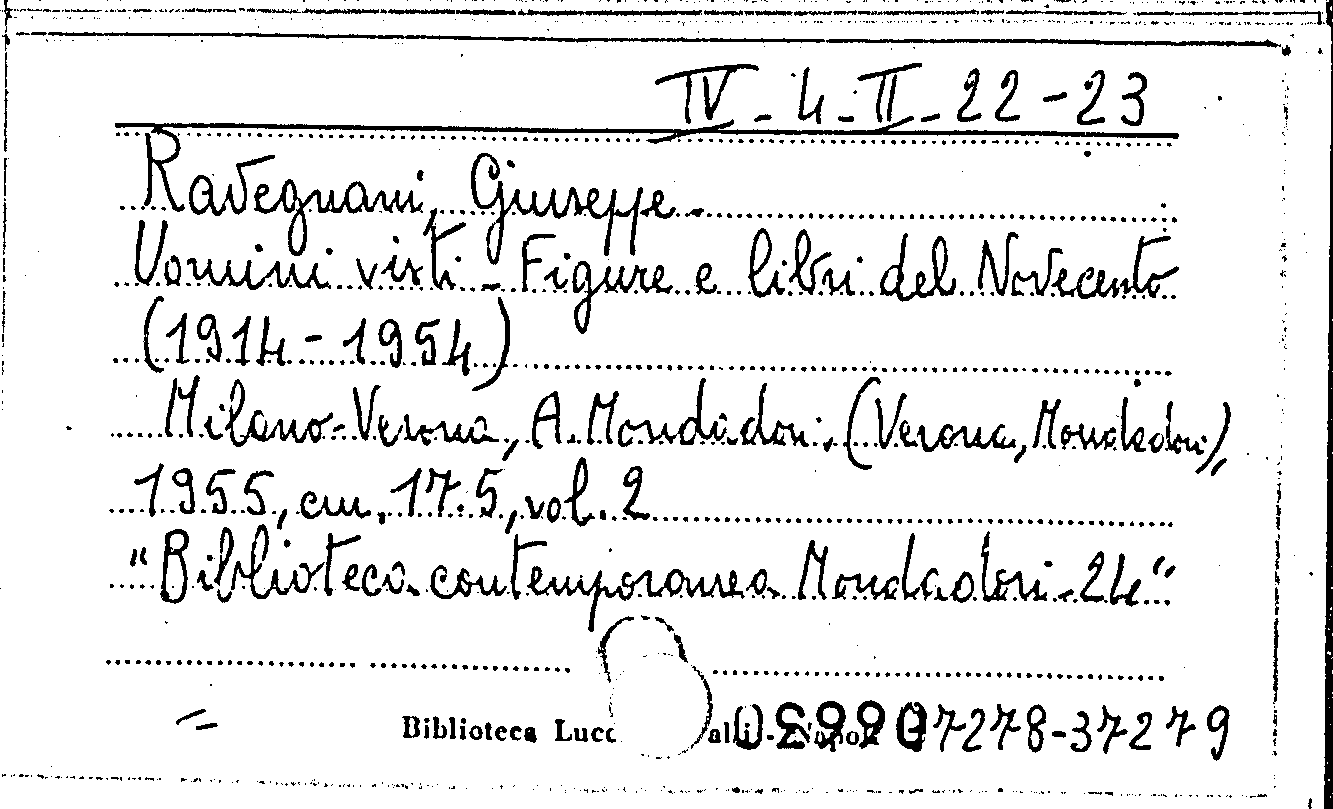 IV - 4 - II - 22 - 23
Ravegnani, Giuseppe -
Uomini visti - Figure e libri del Novecento
(1914 - 1954)
Milano-Verona, A. Mondadori, (Verona, Mondadori),
1955, cm. 17.5, vol. 2
"Biblioteca contemporanea Mondadori - 24"
Biblioteca Lucc alli - Napoli 37278-37279